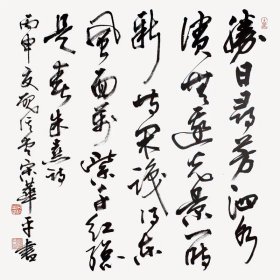 胜日寻芳泗水
滨无边光景一时
新等闲识得东
风面万紫千红总
是春朱熹诗
丙申夏砚宗华平书